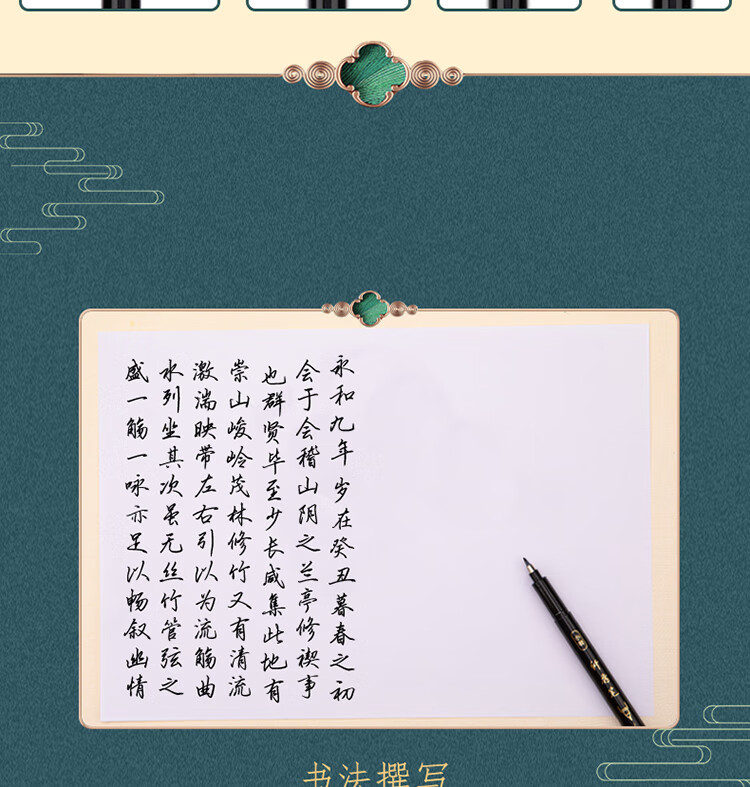 永和九年岁在癸丑暮春之初
会于会稽山阴之兰亭修禊事
也群贤毕至少长咸集此地有
崇山峻岭茂林修竹又有清流
激湍映带左右引以为流觞曲
水列坐其次虽无丝竹管弦之
盛一觞一咏亦足以畅叙幽情
书法撰写